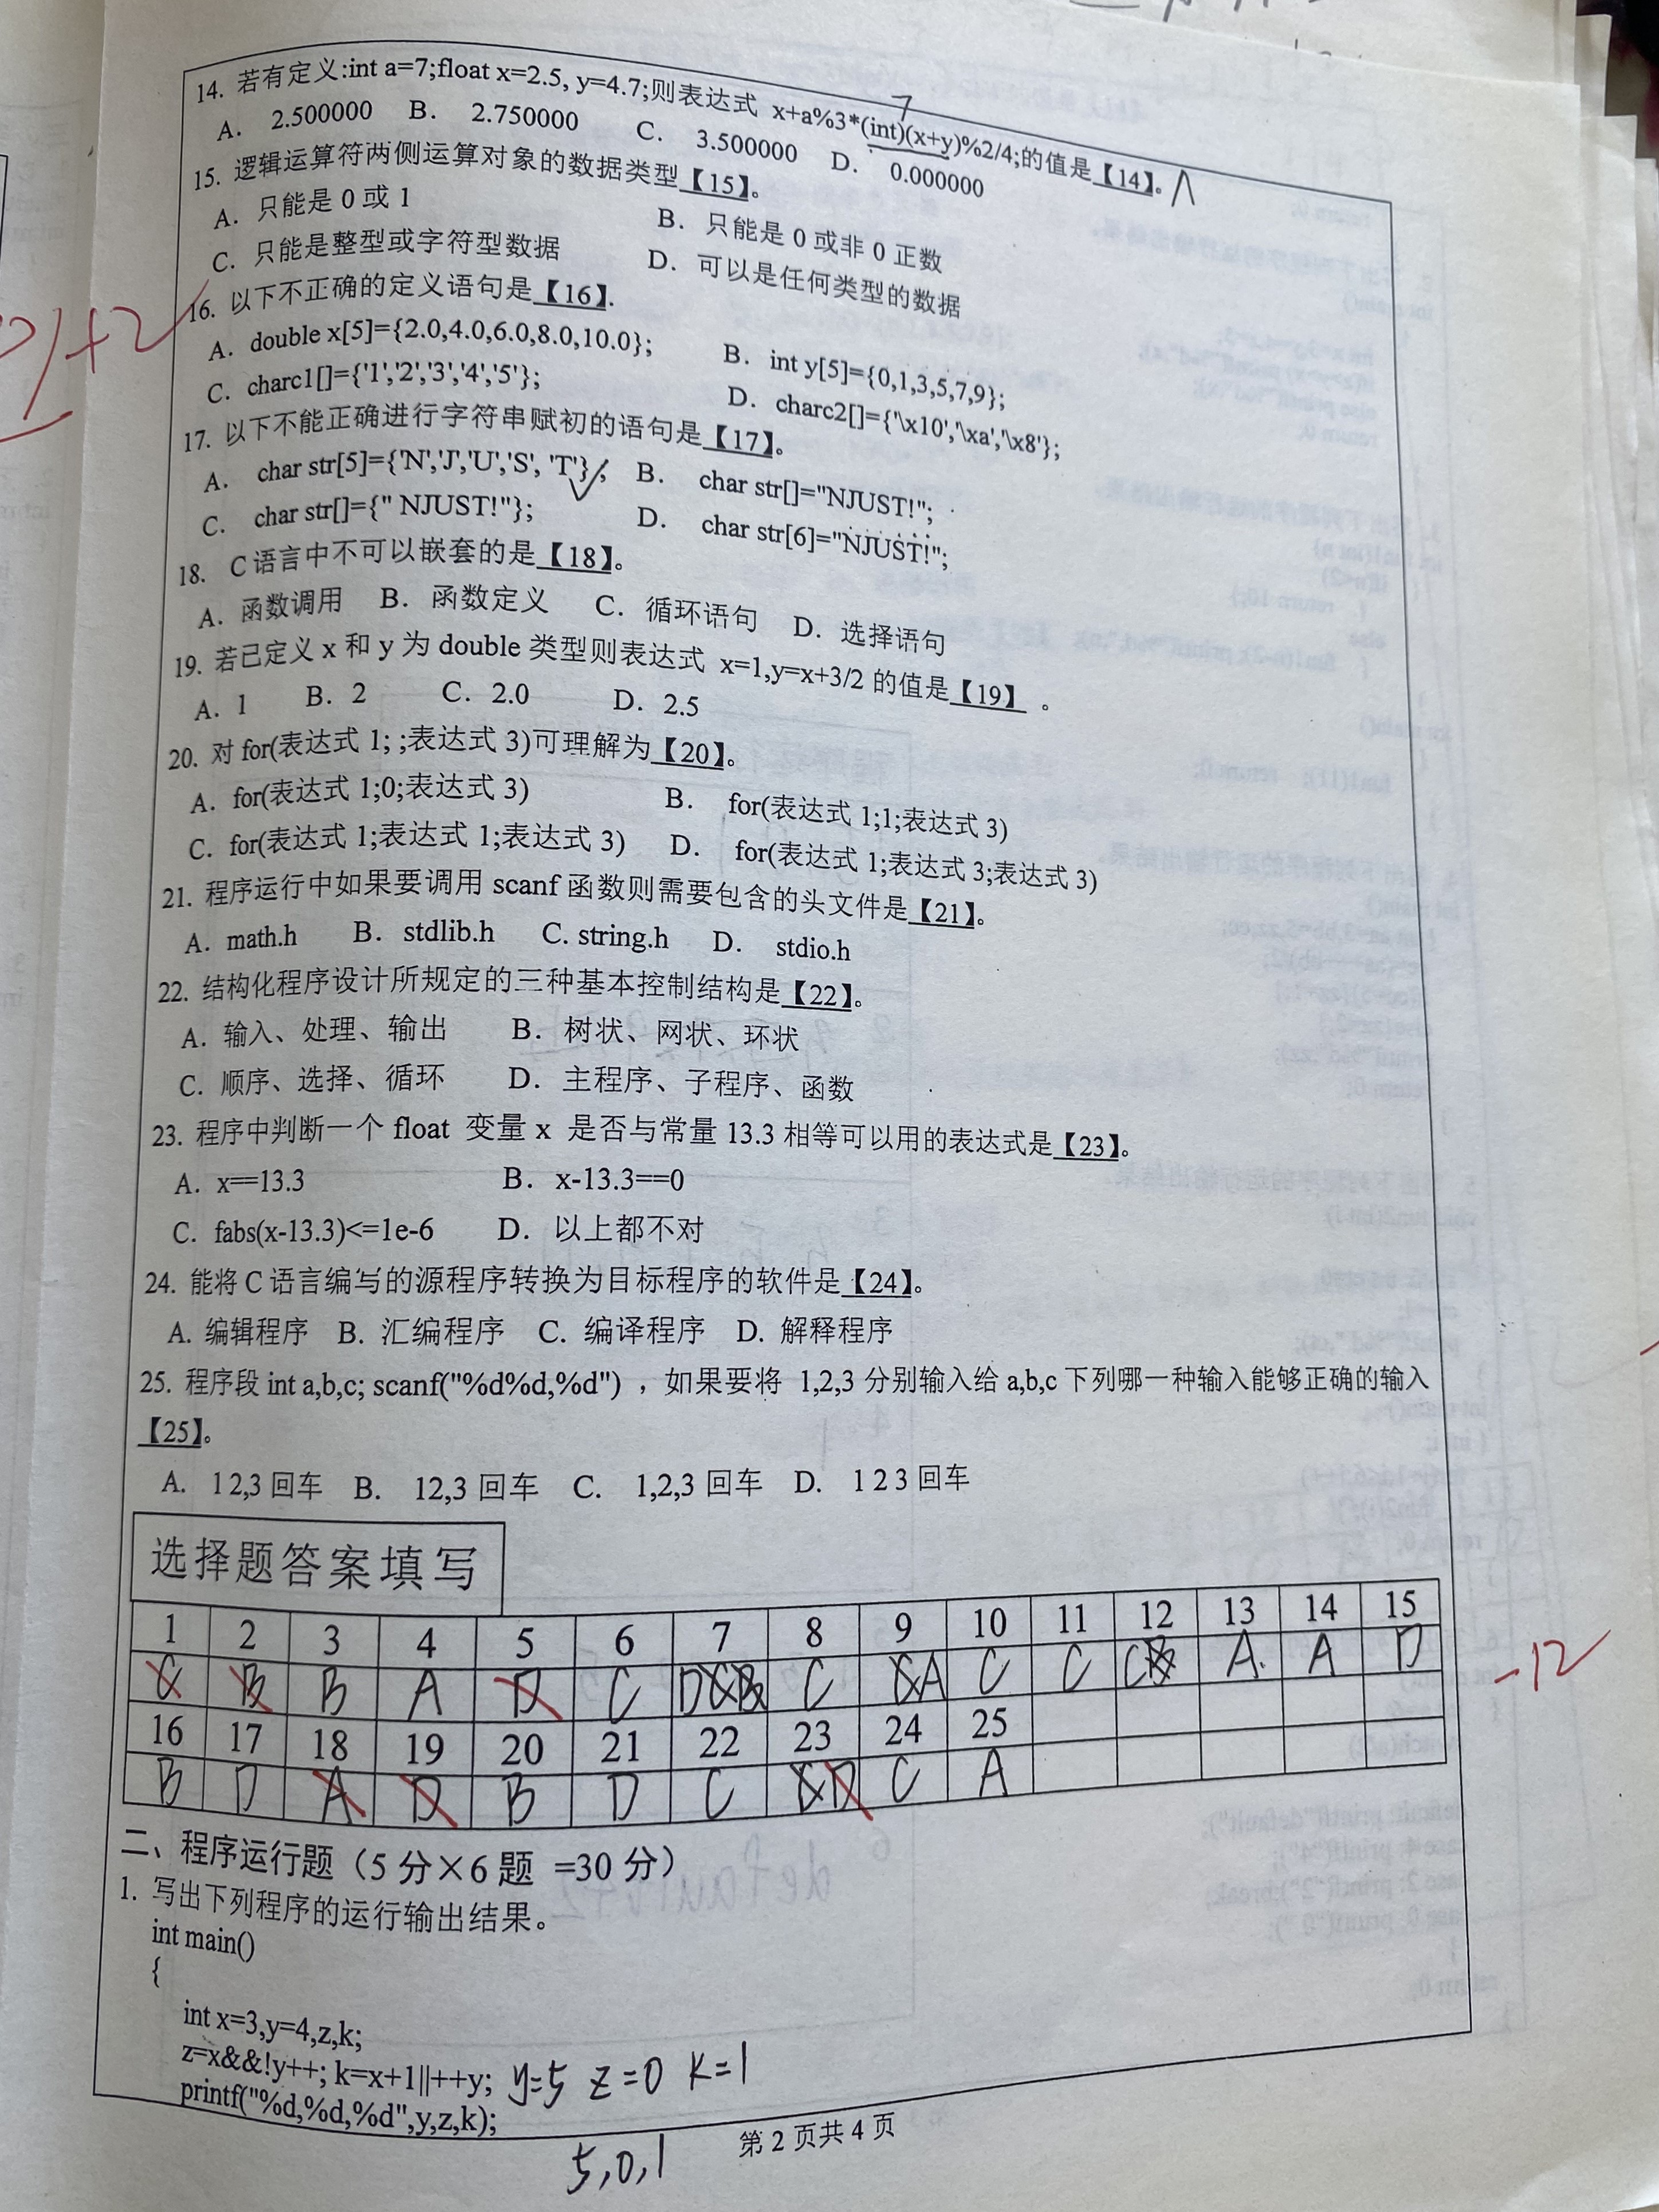 14. 若有定义:int a=7;float x=2.5, y=4.7;则表达式 x+a%3*(int)(x+y)%2/4;的值是【14】。A
7
A. 2.500000 B. 2.750000 C. 3.500000 D. 0.000000
15. 逻辑运算符两侧运算对象的数据类型【15】。
A. 只能是 0 或 1 B. 只能是 0 或非 0 正数
C. 只能是整型或字符型数据 D. 可以是任何类型的数据
16. 以下不正确的定义语句是【16】.
A. double x[5]={2.0,4.0,6.0,8.0,10.0}; B. int y[5]={0,1,3,5,7,9};
C. charc1[]={'1','2','3','4','5'}; D. charc2[]={'\x10','\xa','\x8'};
17. 以下不能正确进行字符串赋初的语句是【17】。
A. char str[5]={'N','J','U','S', 'T'}; B. char str[]="NJUST!";
C. char str[]={" NJUST!"}; D. char str[6]="NJUST!";
18. C 语言中不可以嵌套的是【18】。
A. 函数调用 B. 函数定义 C. 循环语句 D. 选择语句
19. 若已定义 x 和 y 为 double 类型则表达式 x=1,y=x+3/2 的值是【19】 。
A. 1 B. 2 C. 2.0 D. 2.5
20. 对 for(表达式 1; ;表达式 3)可理解为【20】。
A. for(表达式 1;0;表达式 3) B. for(表达式 1;1;表达式 3)
C. for(表达式 1;表达式 1;表达式 3) D. for(表达式 1;表达式 3;表达式 3)
21. 程序运行中如果要调用 scanf 函数则需要包含的头文件是【21】。
A. math.h B. stdlib.h C. string.h D. stdio.h
22. 结构化程序设计所规定的三种基本控制结构是【22】。
A. 输入、处理、输出 B. 树状、网状、环状
C. 顺序、选择、循环 D. 主程序、子程序、函数
23. 程序中判断一个 float 变量 x 是否与常量 13.3 相等可以用的表达式是【23】。
A. x==13.3 B. x-13.3==0
C. fabs(x-13.3)<=1e-6 D. 以上都不对
24. 能将 C 语言编写的源程序转换为目标程序的软件是【24】。
A. 编辑程序 B. 汇编程序 C. 编译程序 D. 解释程序
25. 程序段 int a,b,c; scanf("%d%d,%d") ，如果要将 1,2,3 分别输入给 a,b,c 下列哪一种输入能够正确的输入
【25】。
A. 1 2,3 回车 B. 12,3 回车 C. 1,2,3 回车 D. 1 2 3 回车
选择题答案填写
1 2 3 4 5 6 7 8 9 10 11 12 13 14 15
C B B A D C D C A C C C A. A D
-12
16 17 18 19 20 21 22 23 24 25
B D A D B D C D C A
二、程序运行题（5 分×6 题 =30 分）
1. 写出下列程序的运行输出结果。
int main()
{
int x=3,y=4,z,k;
z=x&&!y++; k=x+1||++y; y=5 z=0 k=1
printf("%d,%d,%d",y,z,k);
5,0,1
第 2 页共 4 页